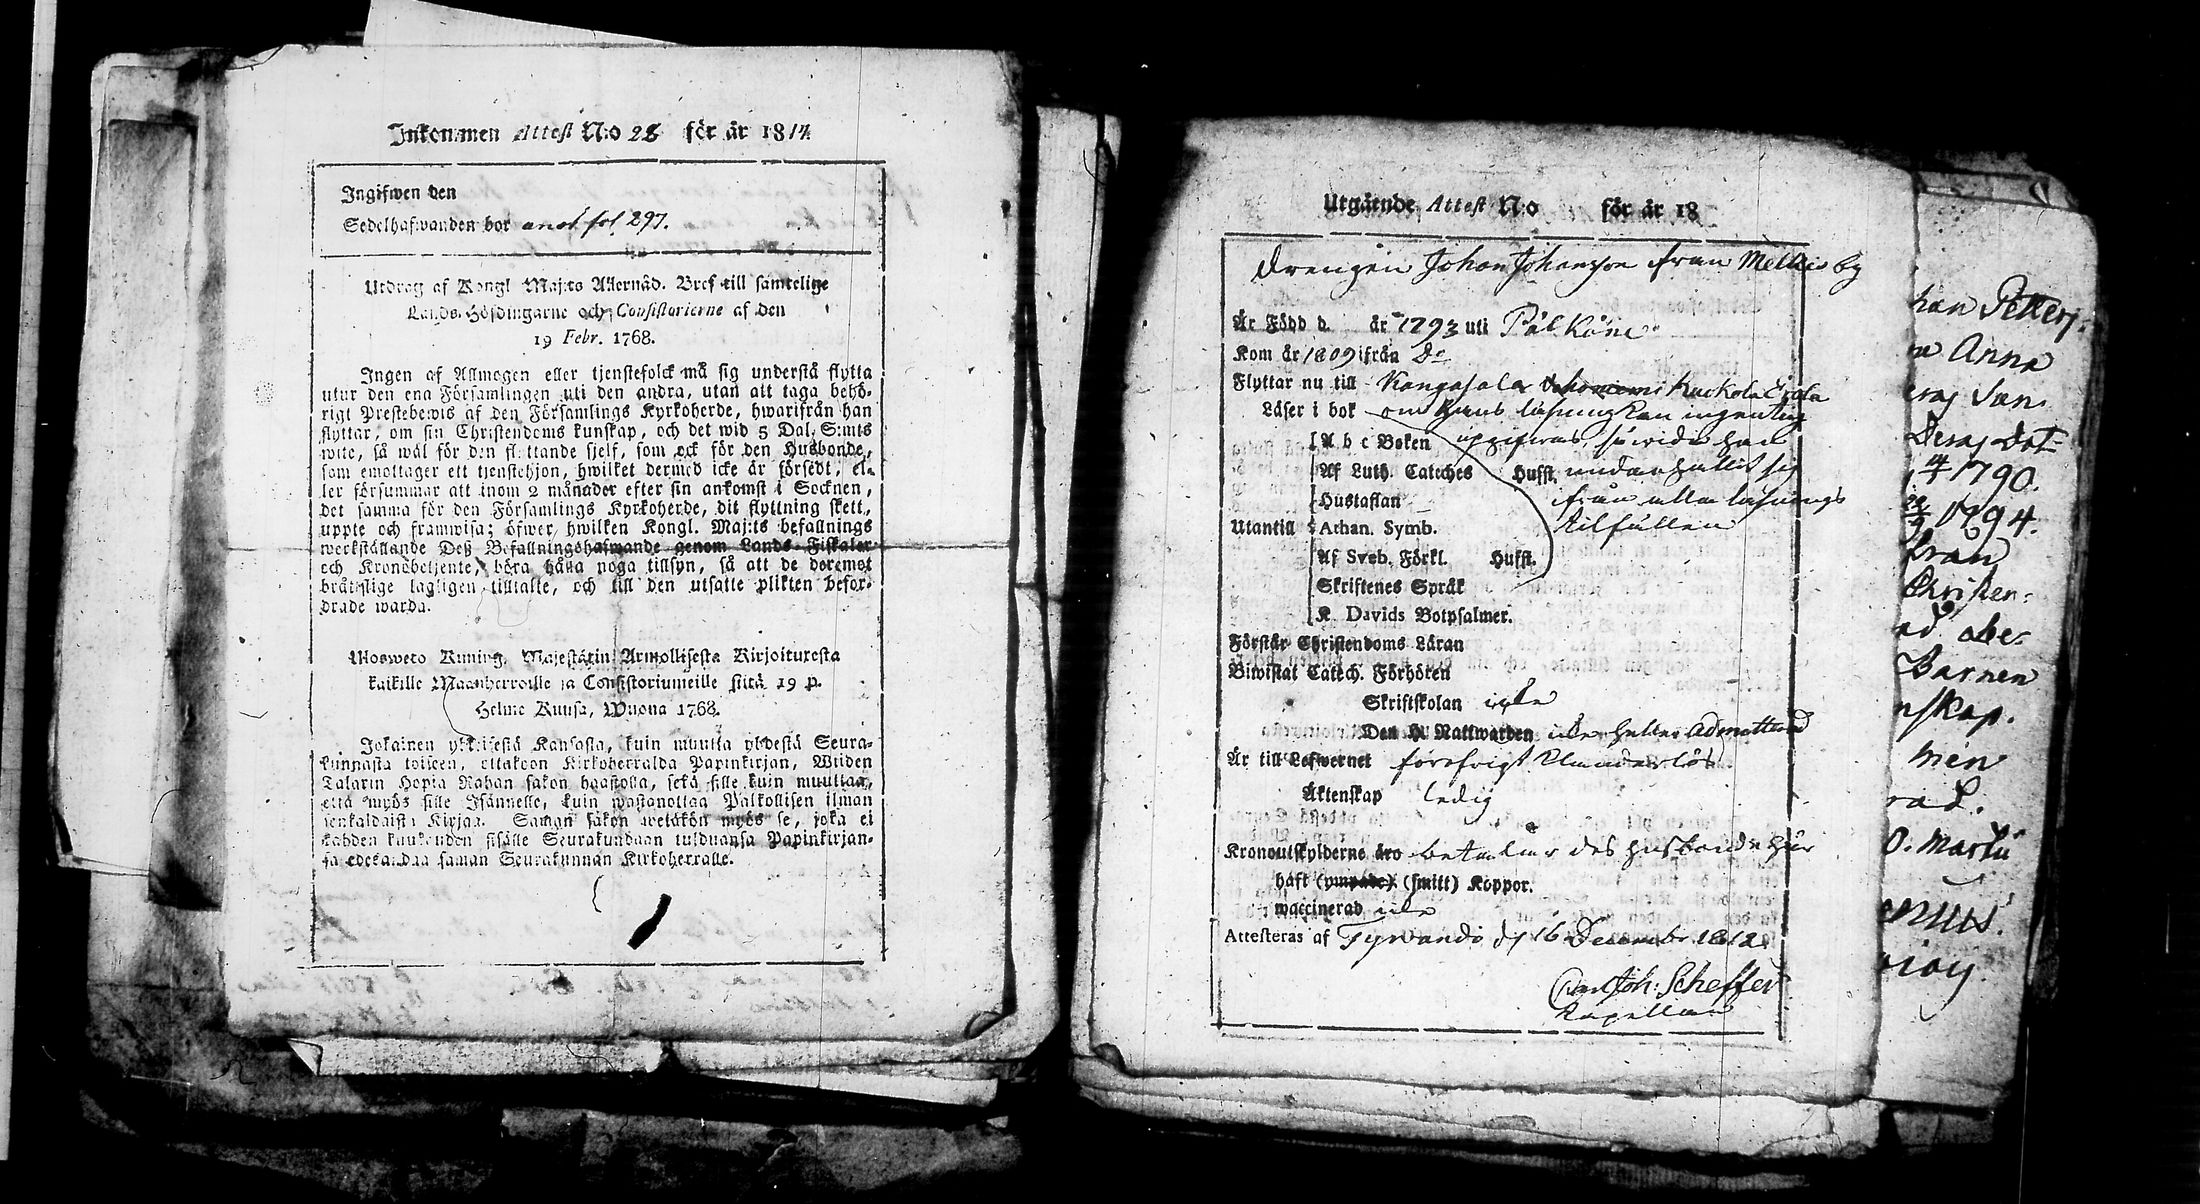 Inkommen Attest N:o 28 för år 1814
Ingifwen den
Sedelhafwanden bor anot fol 297.
Utdrag af Kongl Maj:ts Allernåd. Bref till samtelige
Lands-Höfdingarne och Consistorierne af den
19 Febr. 1768.
Ingen af Allmogen eller tjenstefolck må sig understå flytta
utur den ena Församlingen uti den andra, utan att taga behö-
rigt Prestebewis af den Församlings Kyrkoherde, hwarifrån han
flyttar, om sin Christendoms kunskap, och det wid 5 Dal. S:mts
wite, så wäl för den flyttande sjelf, som ock för den Husbonde,
som emottager ett tjenstehjon, hwilket dermed icke är försedt, el-
ler försummar att inom 2 månader efter sin ankomst i Socknen,
det samma för den Församlings Kyrkoherde, dit flyttning skett,
uppte och framwisa; öfwer hwilken Kongl. Maj:ts befallnings
werkställande Deß Befallningshafwande genom Lands-Fiskaler
och Kronobetjente, böra hålla noga tillsyn, så att de deremot
bråttslige lagligen tilltalte, och till den utsatte plikten befor-
drade warda.
Mosweto Kuning. Majestätin Armollisesta Kirjoituxesta
kaikille Maanherroille ja Consistoriumeille siitä 19 p.
Helme Kuusa, Wuona 1768.
Jokainen ykteisestä Kansasta, kuin muutta yhdestä Seura-
kunnasta toiseen, ottakoon Kirkoherralda Papinkirjan, Wiiden
Talarin Hopia Rahan sakon haastolla, sekä sille kuin muuttaa,
että myös sille Isännelle, kuin wastanottaa Palkollisen ilman
senkaldaista Kirjaa. Saman sakon wetäkön myös se, joka ei
kahden kuukauden sisälle Seurakundaan tulduansa Papinkirjan-
sa edesandaa saman Seurakunnan Kirkoherralle.
Utgående Attest N:o för år 18
Drengen Johan Johansson från Mellis by
Är Född d. år 1793 uti Pälkäne
Kom år 1809 ifrån Do
Flyttar nu till Kangasala Kuckola
Läser i bok om hans läsning kan ingenting
A b c Boken uppgifwas, så wida han
Af Luth. Cateches Hufst. undanhållit sig
Hustaflan från alla läsnings
Utantill Athan. Symb. tillfällen
Af Sveb. Förkl. Hufst.
Skriftenes Språk
K. Davids Botpsalmer.
Förstår Christendoms Läran
Biwistat Catech. Förhören
Skriftskolan icke
Den H. Nattwarden icke heller admitterad
Är till Lefwernet föröfrigt klanderlös
Äktenskap ledig
Kronoutskylderne äro betalar des husbonde här
haft (ympade) (smitt) Koppor.
waccinerad icke
Attesteras af Tyrwändö d 16 Decembr 1812
Carl Joh: Scheffer
Kapellan
han Petters
Anna
Dot
1790.
1794.
från
Christen:
Barnen
nskap.
men
rad.
O. Martii